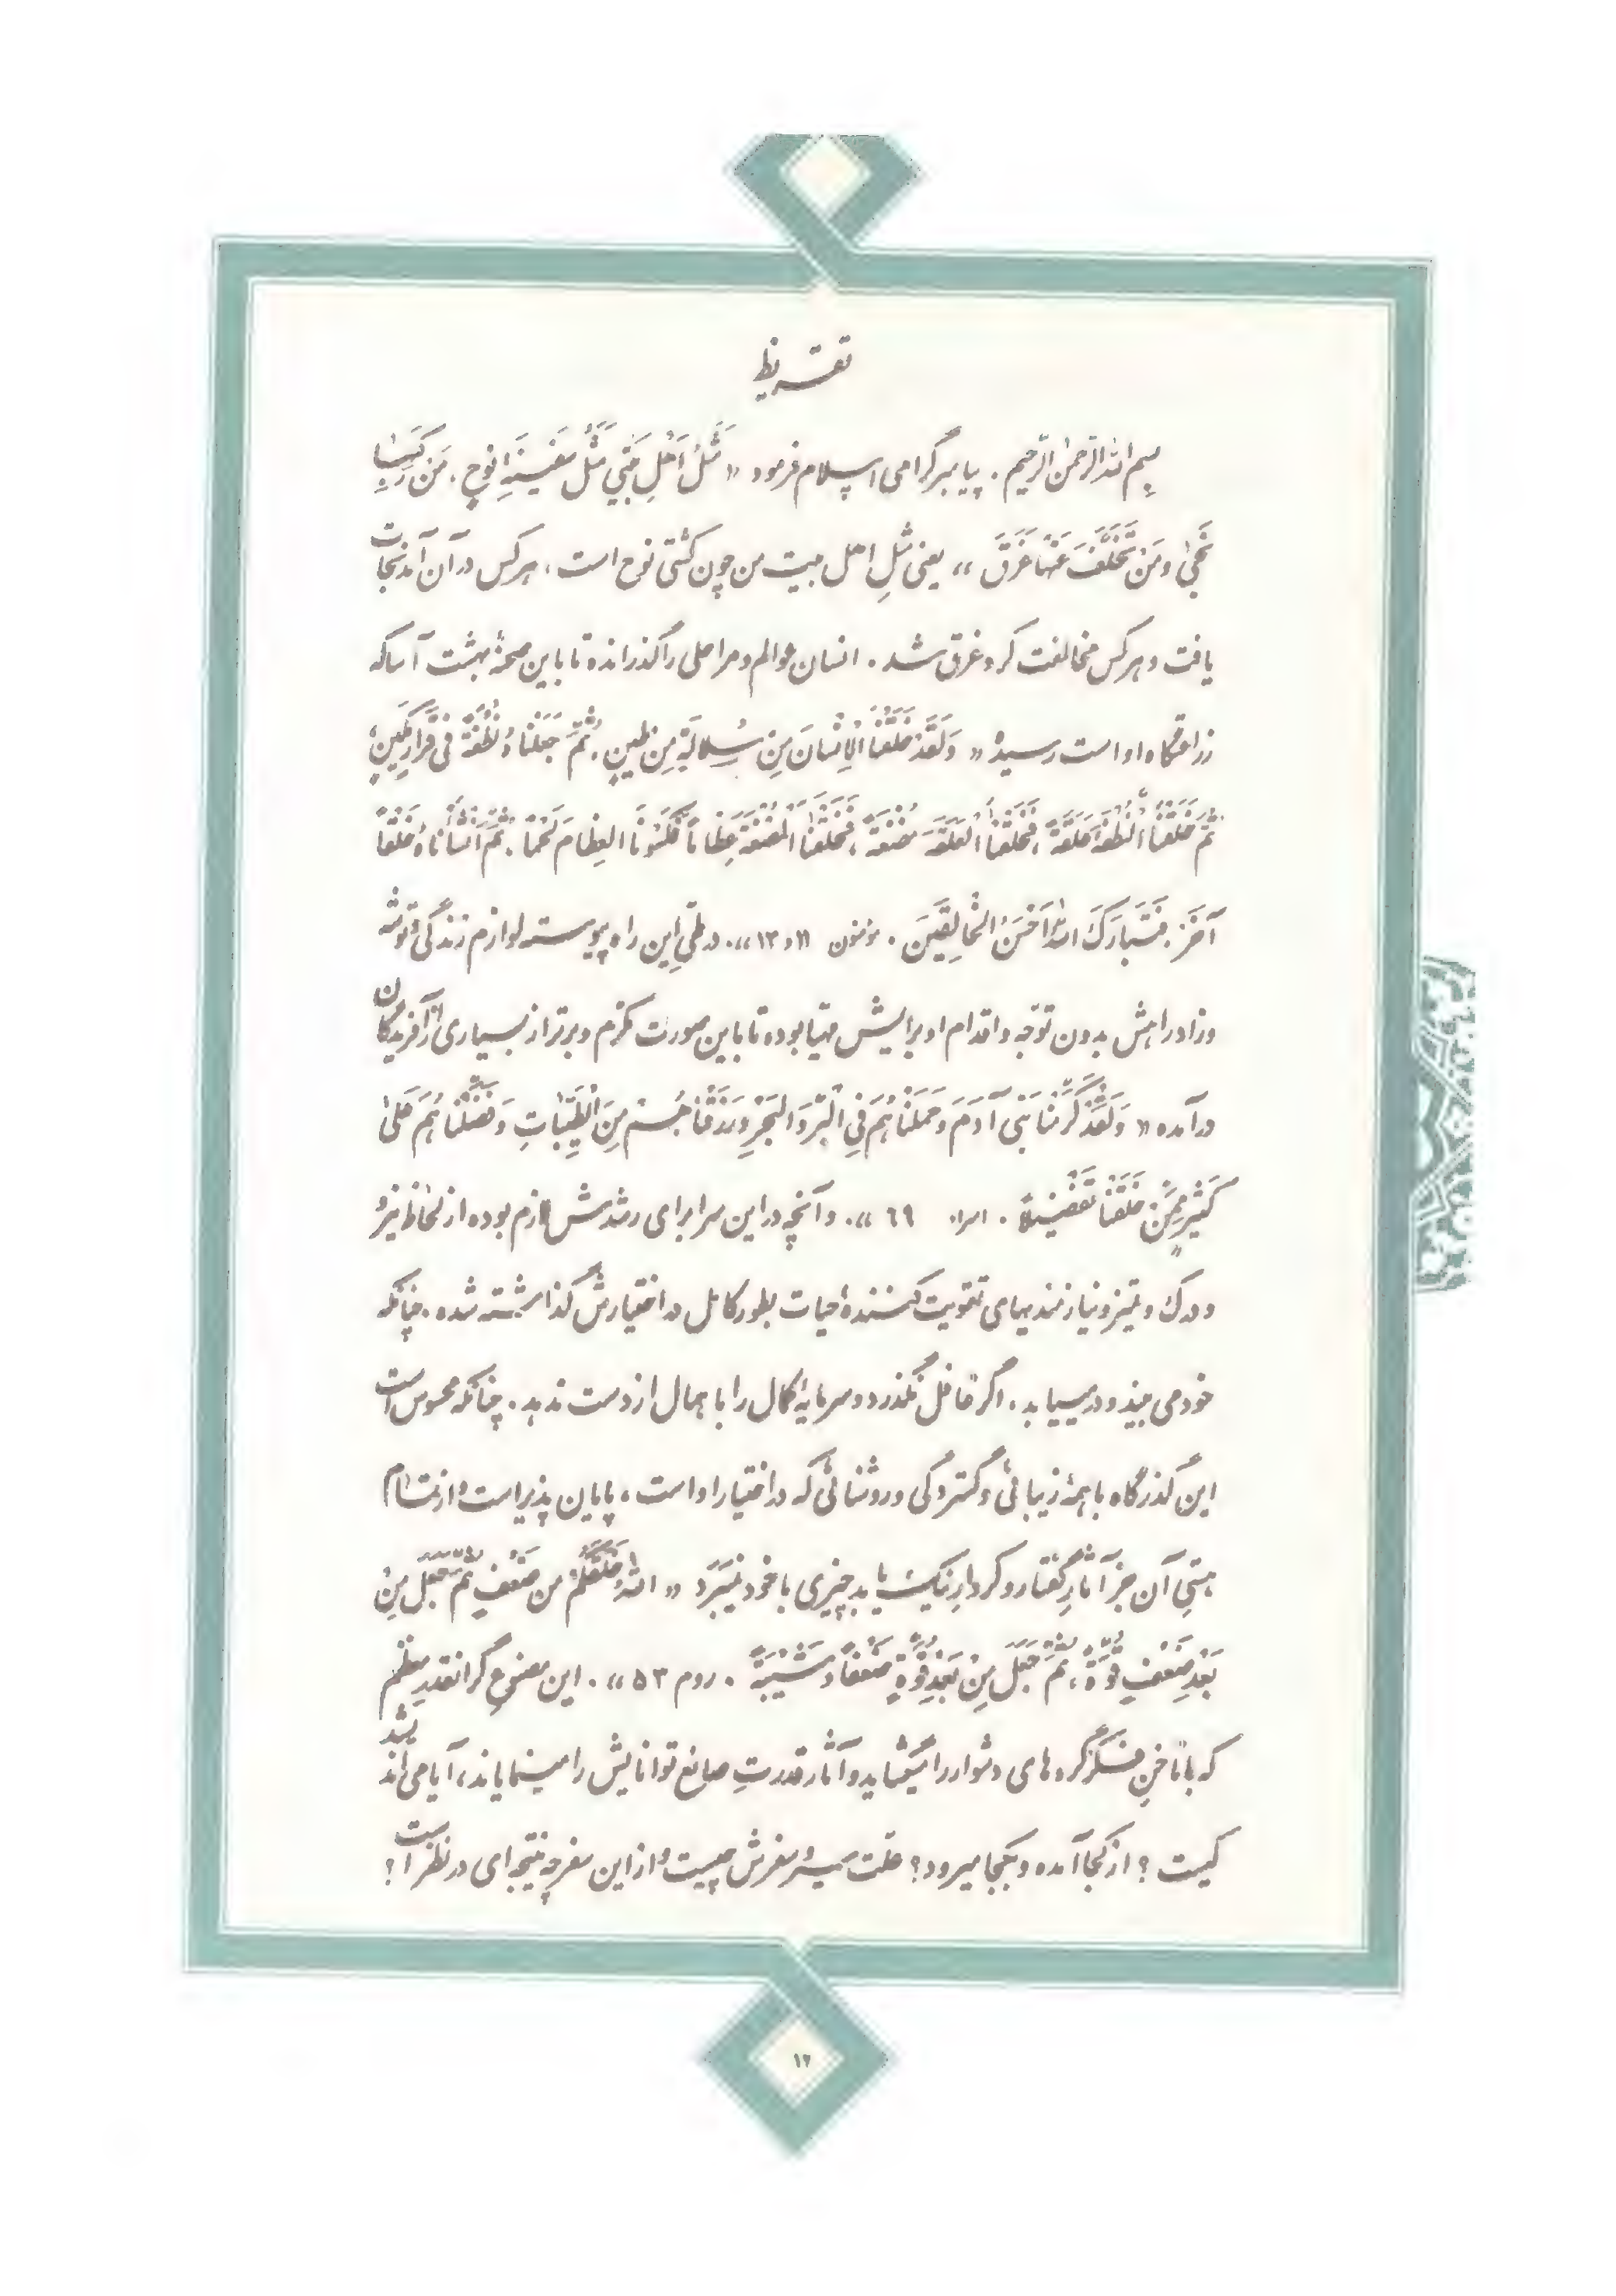 تقریظ
بسم الله الرحمن الرحیم . پیامبر گرامی اسلام فرمود « مَثَلُ اَهْلِ بَیْتِی مَثَلُ سَفِینَةِ نُوحٍ . مَنْ رَکِبَهَا
نَجَیٰ وَ مَنْ تَخَلَّفَ عَنْهَا غَرَقَ » یعنی مَثَلِ اهل بیت من چون کشتی نوح است ، هر کس در آن آمد نجات
یافت و هر کس مخالفت کرد غرق شد . انسان عوالم و مراحلی را گذرانده تا باین صحنهٔ بهشت آسا که
زراعتگاه او است رسیده « وَ لَقَدْ خَلَقْنَا الْاِنْسَانَ مِنْ سُلَالَةٍ مِنْ طِینٍ . ثُمَّ جَعَلْنَاهُ نُطْفَةً فِی قَرَارٍ مَکِینٍ ،
ثُمَّ خَلَقْنَا النُّطْفَةَ عَلَقَةً ، فَخَلَقْنَا الْعَلَقَةَ مُضْغَةً ، فَخَلَقْنَا الْمُضْغَةَ عِظَاماً فَکَسَوْنَا الْعِظَامَ لَحْمًا . ثُمَّ اَنْشَأْنَاهُ خَلْقًا
آخَرَ . فَتَبَارَکَ اللهُ اَحْسَنُ الْخَالِقِینَ . مؤمنون ۱۱ و ۱۳ » . در طیِّ این راه پیوسته لوازم زندگی و توشه
و زاد راهش بدون توجه و اقدام او برایش مهیا بوده تا باین صورت مکرّم و برتر از بسیاری از آفریدگان
درآمده « وَ لَقَدْ کَرَّمْنَا بَنِی آدَمَ وَ حَمَلْنَاهُمْ فِی الْبَرِّ وَ الْبَحْرِ وَ رَزَقْنَاهُمْ مِنَ الطَّیِّبَاتِ وَ فَضَّلْنَاهُمْ عَلَیٰ
کَثِیرٍ مِمَّنْ خَلَقْنَا تَفْضِیلًا . اسراء ۶۹ » . و آنچه در این سرا برای رشدش لازم بوده از لحاظ نیرو
و درک و تمیز و نیازمندیهای تقویت کنندهٔ حیات بطور کامل در اختیارش گذاشته شده . چنانکه
خود می بیند و در مییابد . اگر غافل نگذرد و سرمایهٔ کمال را باهمال از دست ندهد . چنانکه محسوس است
این گذرگاه با همهٔ زیبائی و گستردگی و روشنائی که در اختیار او است ، پایان پذیر است و از تمام
هستیِ آن جز آثارِ گفتار و کردارِ نیک یا بد چیزی با خود نمیَبَرَد « اللهُ خَلَقَکُمْ مِنْ ضَعْفٍ ثُمَّ جَعَلَ مِنْ
بَعْدِ ضَعْفٍ قُوَّةً ، ثُمَّ جَعَلَ مِنْ بَعْدِ قُوَّةٍ ضَعْفًا وَ شَیْبَةً . روم ۵۳ » . این مصنوعِ گرانقدرِ معظم
که با ناخنِ فکر گره‌های دشوار را میگشاید و آثار قدرتِ صانع توانایش را مینمایاند ، آیا می اندیشد
کیست ؟ از کجا آمده و بکجا میرود ؟ علّت سیر و سفرش چیست و از این سفر چه نتیجه ای در نظر است ؟
۱۲